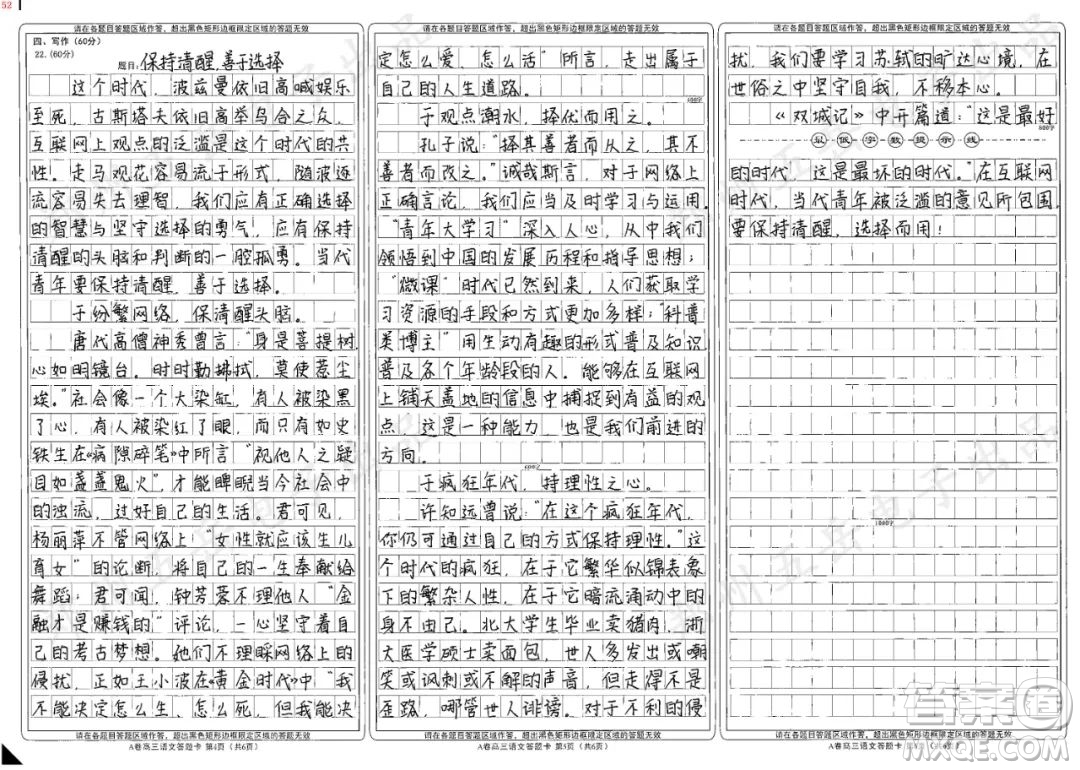 52
请在各题目答题区域作答，超出黑色矩形边框限定区域的答题无效
四、写作（60分）
22.（60分）
题目：保持清醒，善于选择
这个时代，波兹曼依旧高喊娱乐
至死，古斯塔夫依旧高举乌合之众，
互联网上观点的泛滥是这个时代的共
性。走马观花容易流于形式，随波逐
流容易失去理智，我们应有正确选择
的智慧与坚守选择的勇气，应有保持
清醒的头脑和判断的一腔孤勇。当代
青年要保持清醒，善于选择。
于纷繁网络，保清醒头脑。
唐代高僧神秀曾言：“身是菩提树，
心如明镜台。时时勤拂拭，莫使惹尘
埃。”社会像一个大染缸，有人被染黑
了心，有人被染红了眼，而只有如史
铁生在《病隙碎笔》中所言“视他人之疑
目如盏盏鬼火”，才能睥睨当今社会中
的浊流，过好自己的生活。君可见，
杨丽萍不管网络上“女性就应该生儿
育女”的论断，将自己的一生奉献给
舞蹈；君可闻，钟芳蓉不理他人“金
融才是赚钱的”评论，一心坚守着自
己的考古梦想。她们不理睬网络上的
侵扰，正如王小波在《黄金时代》中“我
不能决定怎么生、怎么死，但我能决
请在各题目答题区域作答，超出黑色矩形边框限定区域的答题无效
A卷高三语文答题卡 第4页（共6页）
请在各题目答题区域作答，超出黑色矩形边框限定区域的答题无效
定怎么爱、怎么活”所言，走出属于
自己的人生道路。
400字
于观点潮水，择优而用之。
孔子说：“择其善者而从之，其不
善者而改之。”诚哉斯言，对于网络上
正确言论，我们应当及时学习与运用。
“青年大学习”深入人心，从中我们
领悟到中国的发展历程和指导思想；
“微课”时代已然到来，人们获取学
习资源的手段和方式更加多样；“科普
类博主”用生动有趣的形式普及知识，
普及各个年龄段的人。能够在互联网
上铺天盖地的信息中捕捉到有益的观
点，这是一种能力，也是我们前进的
方向。
600字
于疯狂年代，持理性之心。
许知远曾说：“在这个疯狂年代，
你仍可通过自己的方式保持理性。”这
个时代的疯狂，在于它繁华似锦表象
下的繁杂人性，在于它暗流涌动中的
身不由己。北大学生毕业卖猪肉，浙
大医学硕士卖面包，世人多发出或嘲
笑或讽刺或不解的声音，但走得不是
歪路，哪管世人诽谤。对于不利的侵
请在各题目答题区域作答，超出黑色矩形边框限定区域的答题无效
A卷高三语文答题卡 第5页（共6页）
请在各题目答题区域作答，超出黑色矩形边框限定区域的答题无效
扰，我们要学习苏轼的旷达心境，在
世俗之中坚守自我，不移本心。
《双城记》中开篇道：“这是最好
800字
最低字数提示线
的时代，这是最坏的时代。”在互联网
时代，当代青年被泛滥的意见所包围，
要保持清醒，选择而用！
1000字
请在各题目答题区域作答，超出黑色矩形边框限定区域的答题无效
A卷高三语文答题卡
答案圈